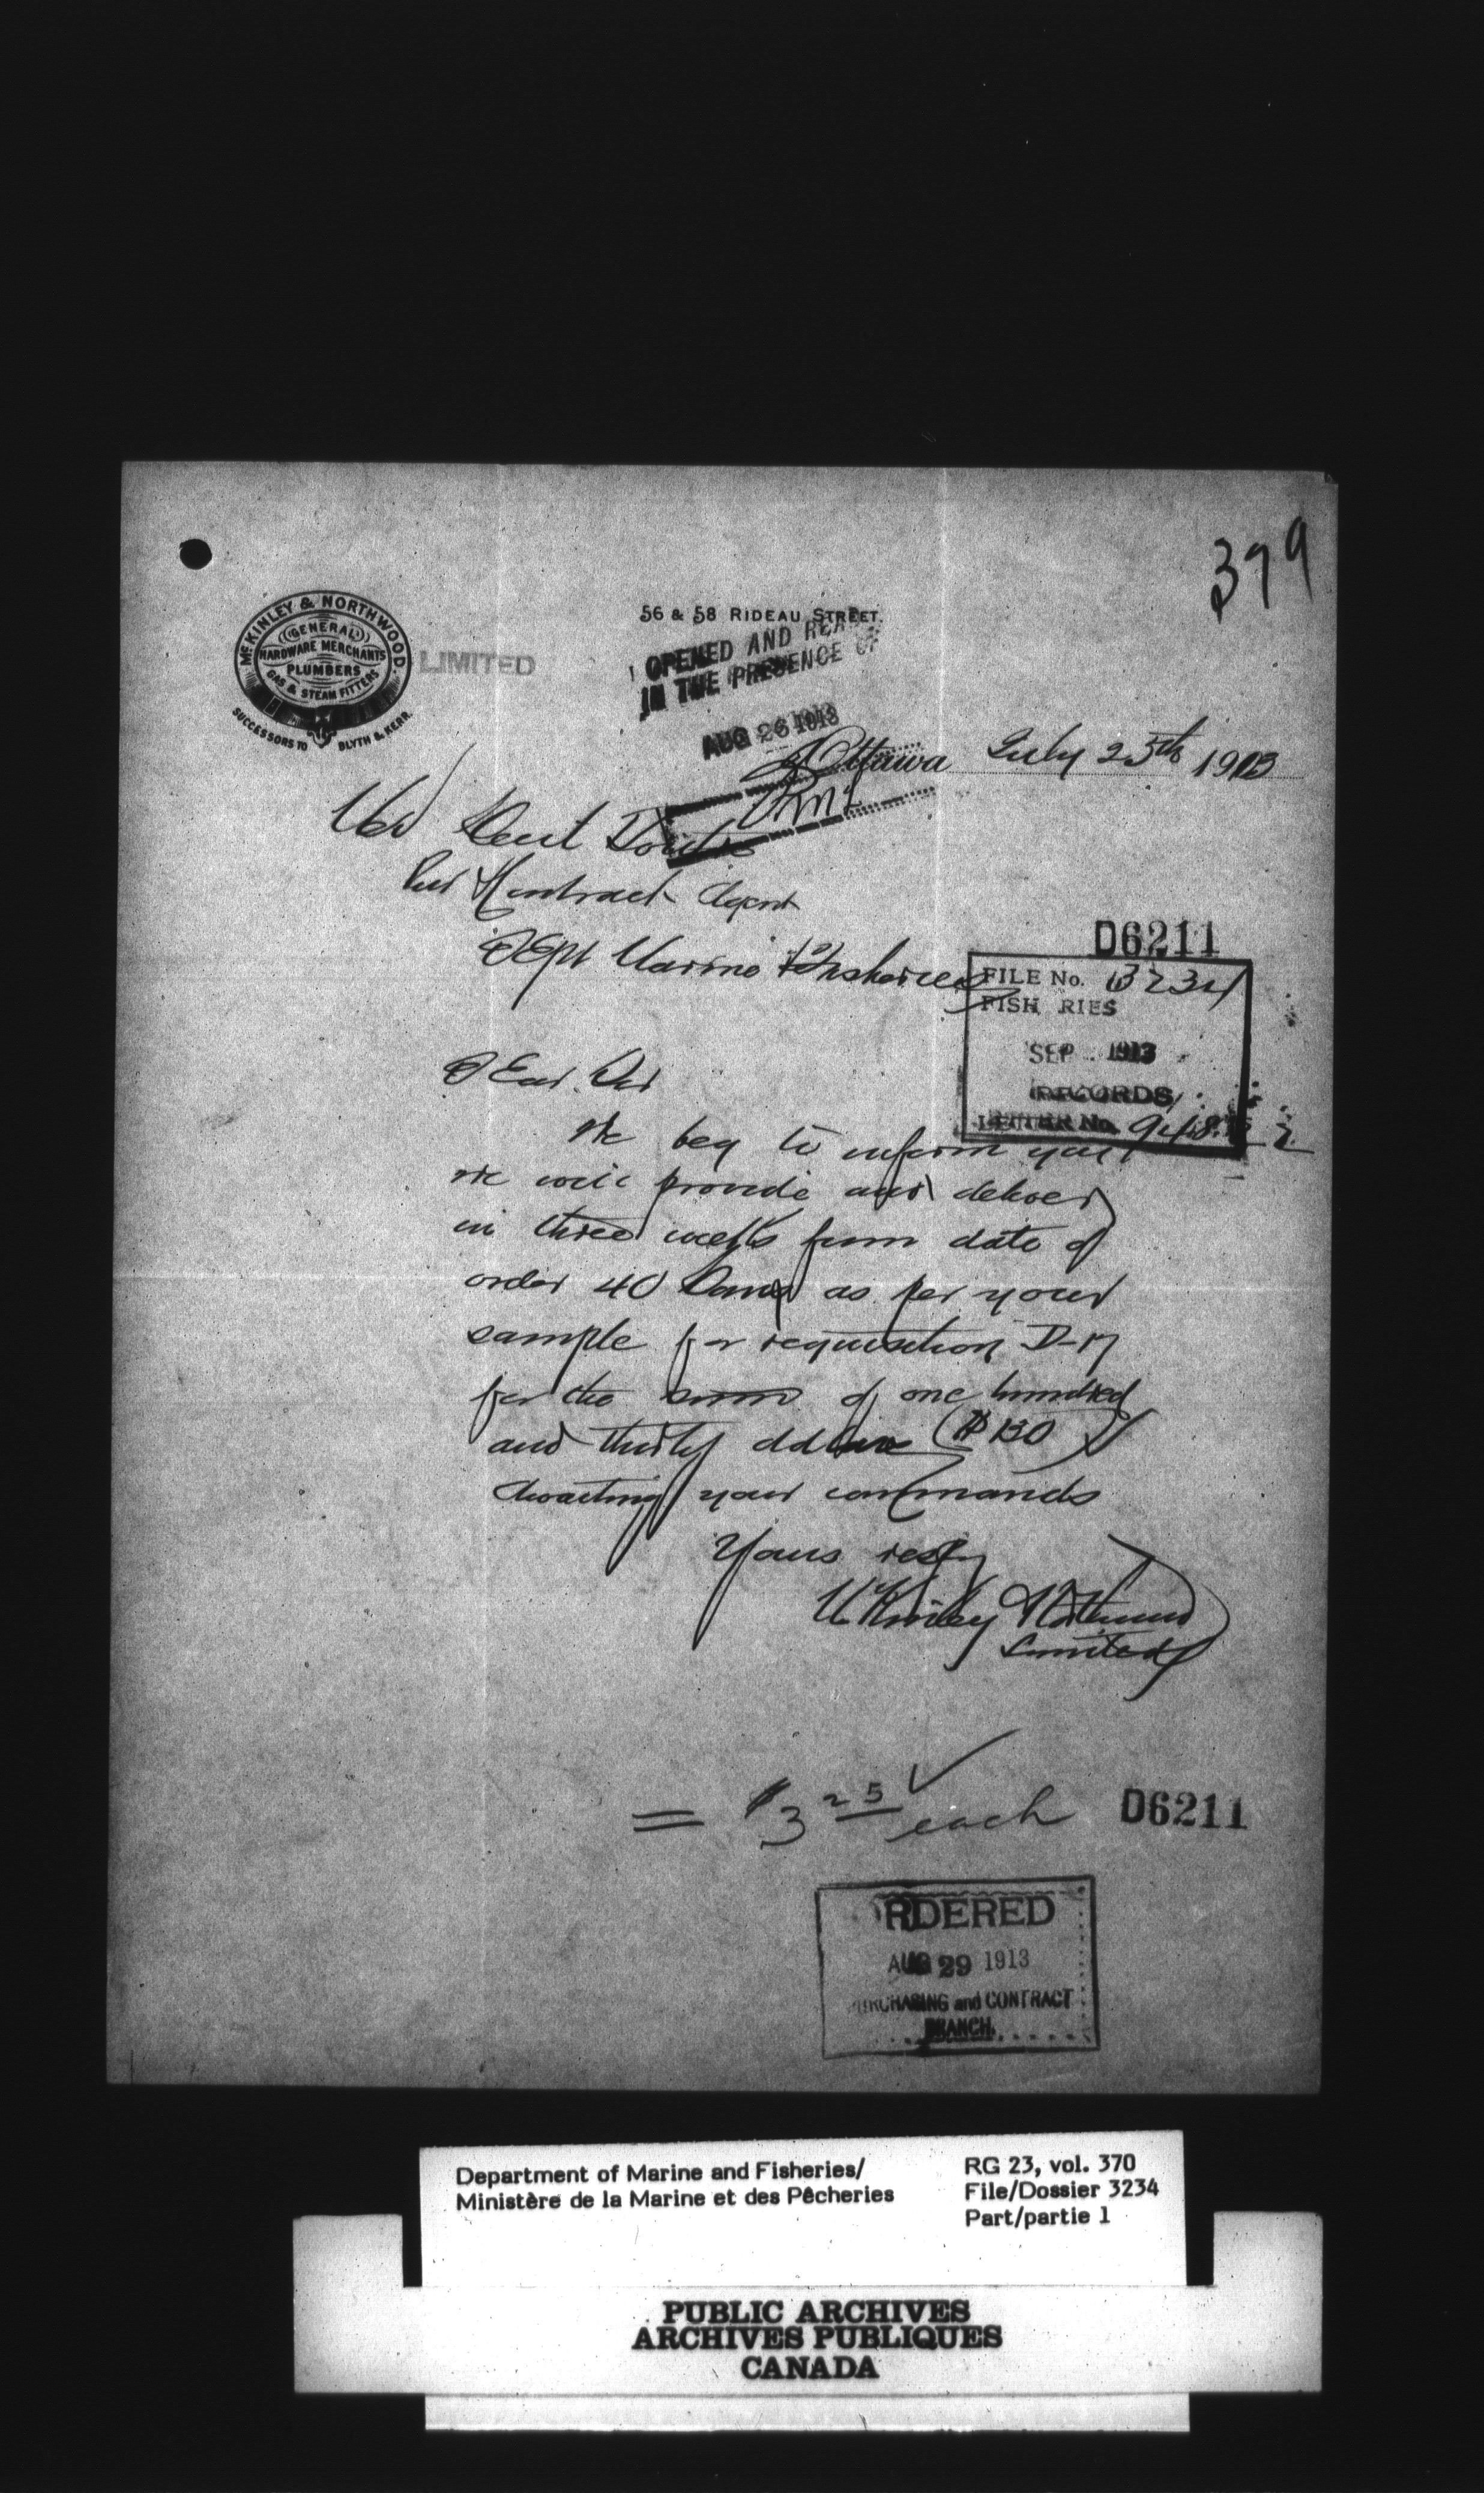 379
McKINLEY & NORTHWOOD.
GENERAL
HARDWARE MERCHANTS
PLUMBERS
GAS & STEAM FITTERS
SUCCESSORS TO BLYTH & KERR.
LIMITED
56 & 58 RIDEAU STREET.
OPENED AND READ
IN THE PRESENCE OF
AUG 26 1913
Ottawa July 25th 1913
Contract Agent
DEpt Marine & Fisheries
D6211
FILE No. 3234
FISH RIES
SEP 1913
RECORDS
LETTER No.
DEar Sir
We beg to inform you
we will provide and deliver
in three weeks from date of
order 40 Cans as per your
sample for requisition D-17
for the sum of one hundred
and thirty dollars ($130)
Awaiting your commands
Yours resply
McKinley & Northwood
Limited
= $3 25 each
D6211
ORDERED
AUG 29 1913
PURCHASING and CONTRACT
BRANCH.
Department of Marine and Fisheries/
Ministère de la Marine et des Pêcheries
RG 23, vol. 370
File/Dossier 3234
Part/partie 1
PUBLIC ARCHIVES
ARCHIVES PUBLIQUES
CANADA